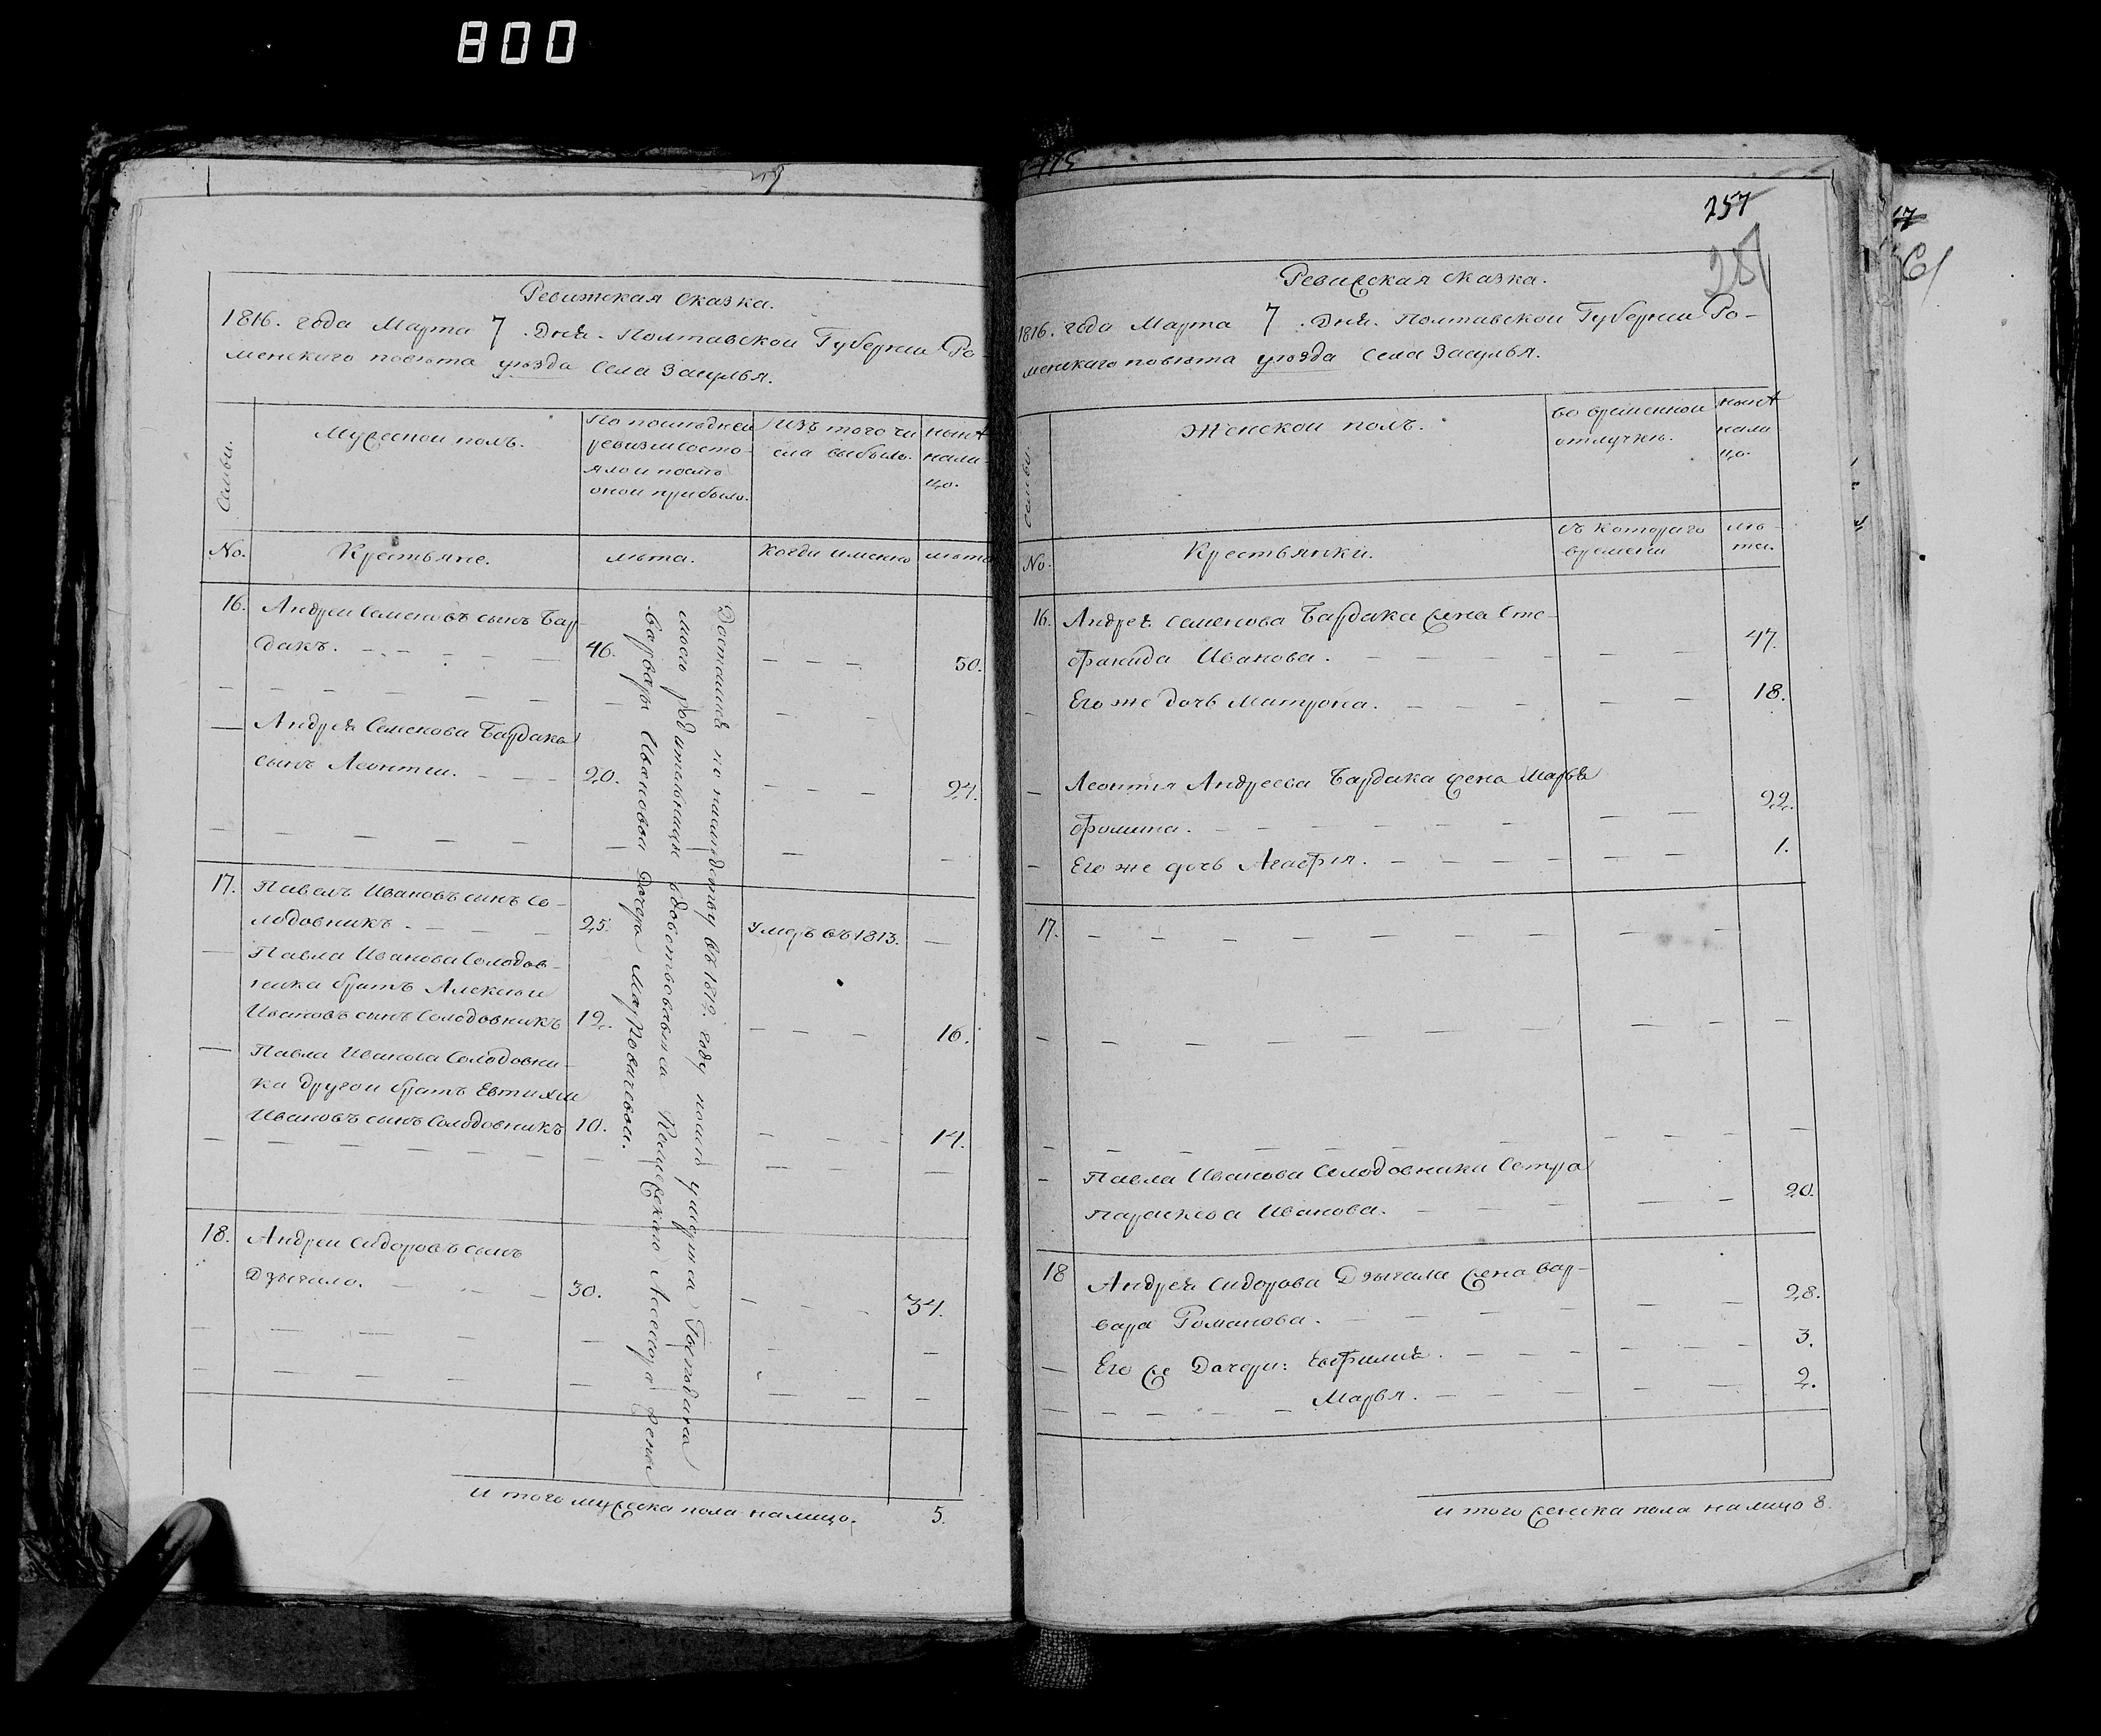 800
Ревижская сказка.
1816. года Марта 7 дня. Полтавской Губернии Ро-
менскаго повѣта уѣзда села Засулья.
Семьи.
Мужеской полъ.
По послѣдней
ревизіи состо-
яло и послѣ
оной прибыло.
Изъ того чи
сла выбыло.
нынѣ
нали-
цо.
No.
Крестьяне.
лѣта.
когда именно
лѣта
16. Андрей Семеновъ сынъ Бар-
дакъ. 46. 50.
Андрея Семенова Бардака
сынъ Леонтій. 20. 24.
17. Павелъ Ивановъ сынъ Со-
лодовникъ. 25. Умръ въ 1813.
Павла Иванова Солодов-
ника братъ Алексѣй
Ивановъ сынъ Солодовникъ 12. 16.
Павла Иванова Солодовни-
ка другой братъ Евтихій
Ивановъ сынъ Солодовникъ 10. 14.
18. Андрей Сидоровъ сынъ
Дзыгало. 30. 34.
Досталися по наслѣдству въ 1812. году послѣ умершія Госпожи
моей родительницы вдовствовавшія Колежского Асессора жены
Варвары Ивановой дочери Марковичевой.
И того мужеска пола налицо. 5.
257
Ревижская сказка.
1816. года Марта 7 дня. Полтавской Губерніи Ро-
менскаго повѣта уѣзда села Засулья.
Семьи.
Женской полъ.
во временной
отлучкѣ.
нынѣ
нали
цо.
No.
Крестьянки.
съ котораго
времени
лѣ-
та.
16. Андрея Семенова Бардака жена Сте-
фанида Иванова. 47.
Его же дочь Матрона. 18.
Леонтія Андреева Бардака жена Марья
Фомина. 22.
Его же дочь Агафія. 1.
17.
Павла Иванова Солодовника сестра
Параскева Иванова. 20.
18 Андрея Сидорова Дзыгала жена Вар-
вара Романова. 28.
Его же дочери: Евфимія. 3.
Марья. 2.
и того женска пола налицо 8.